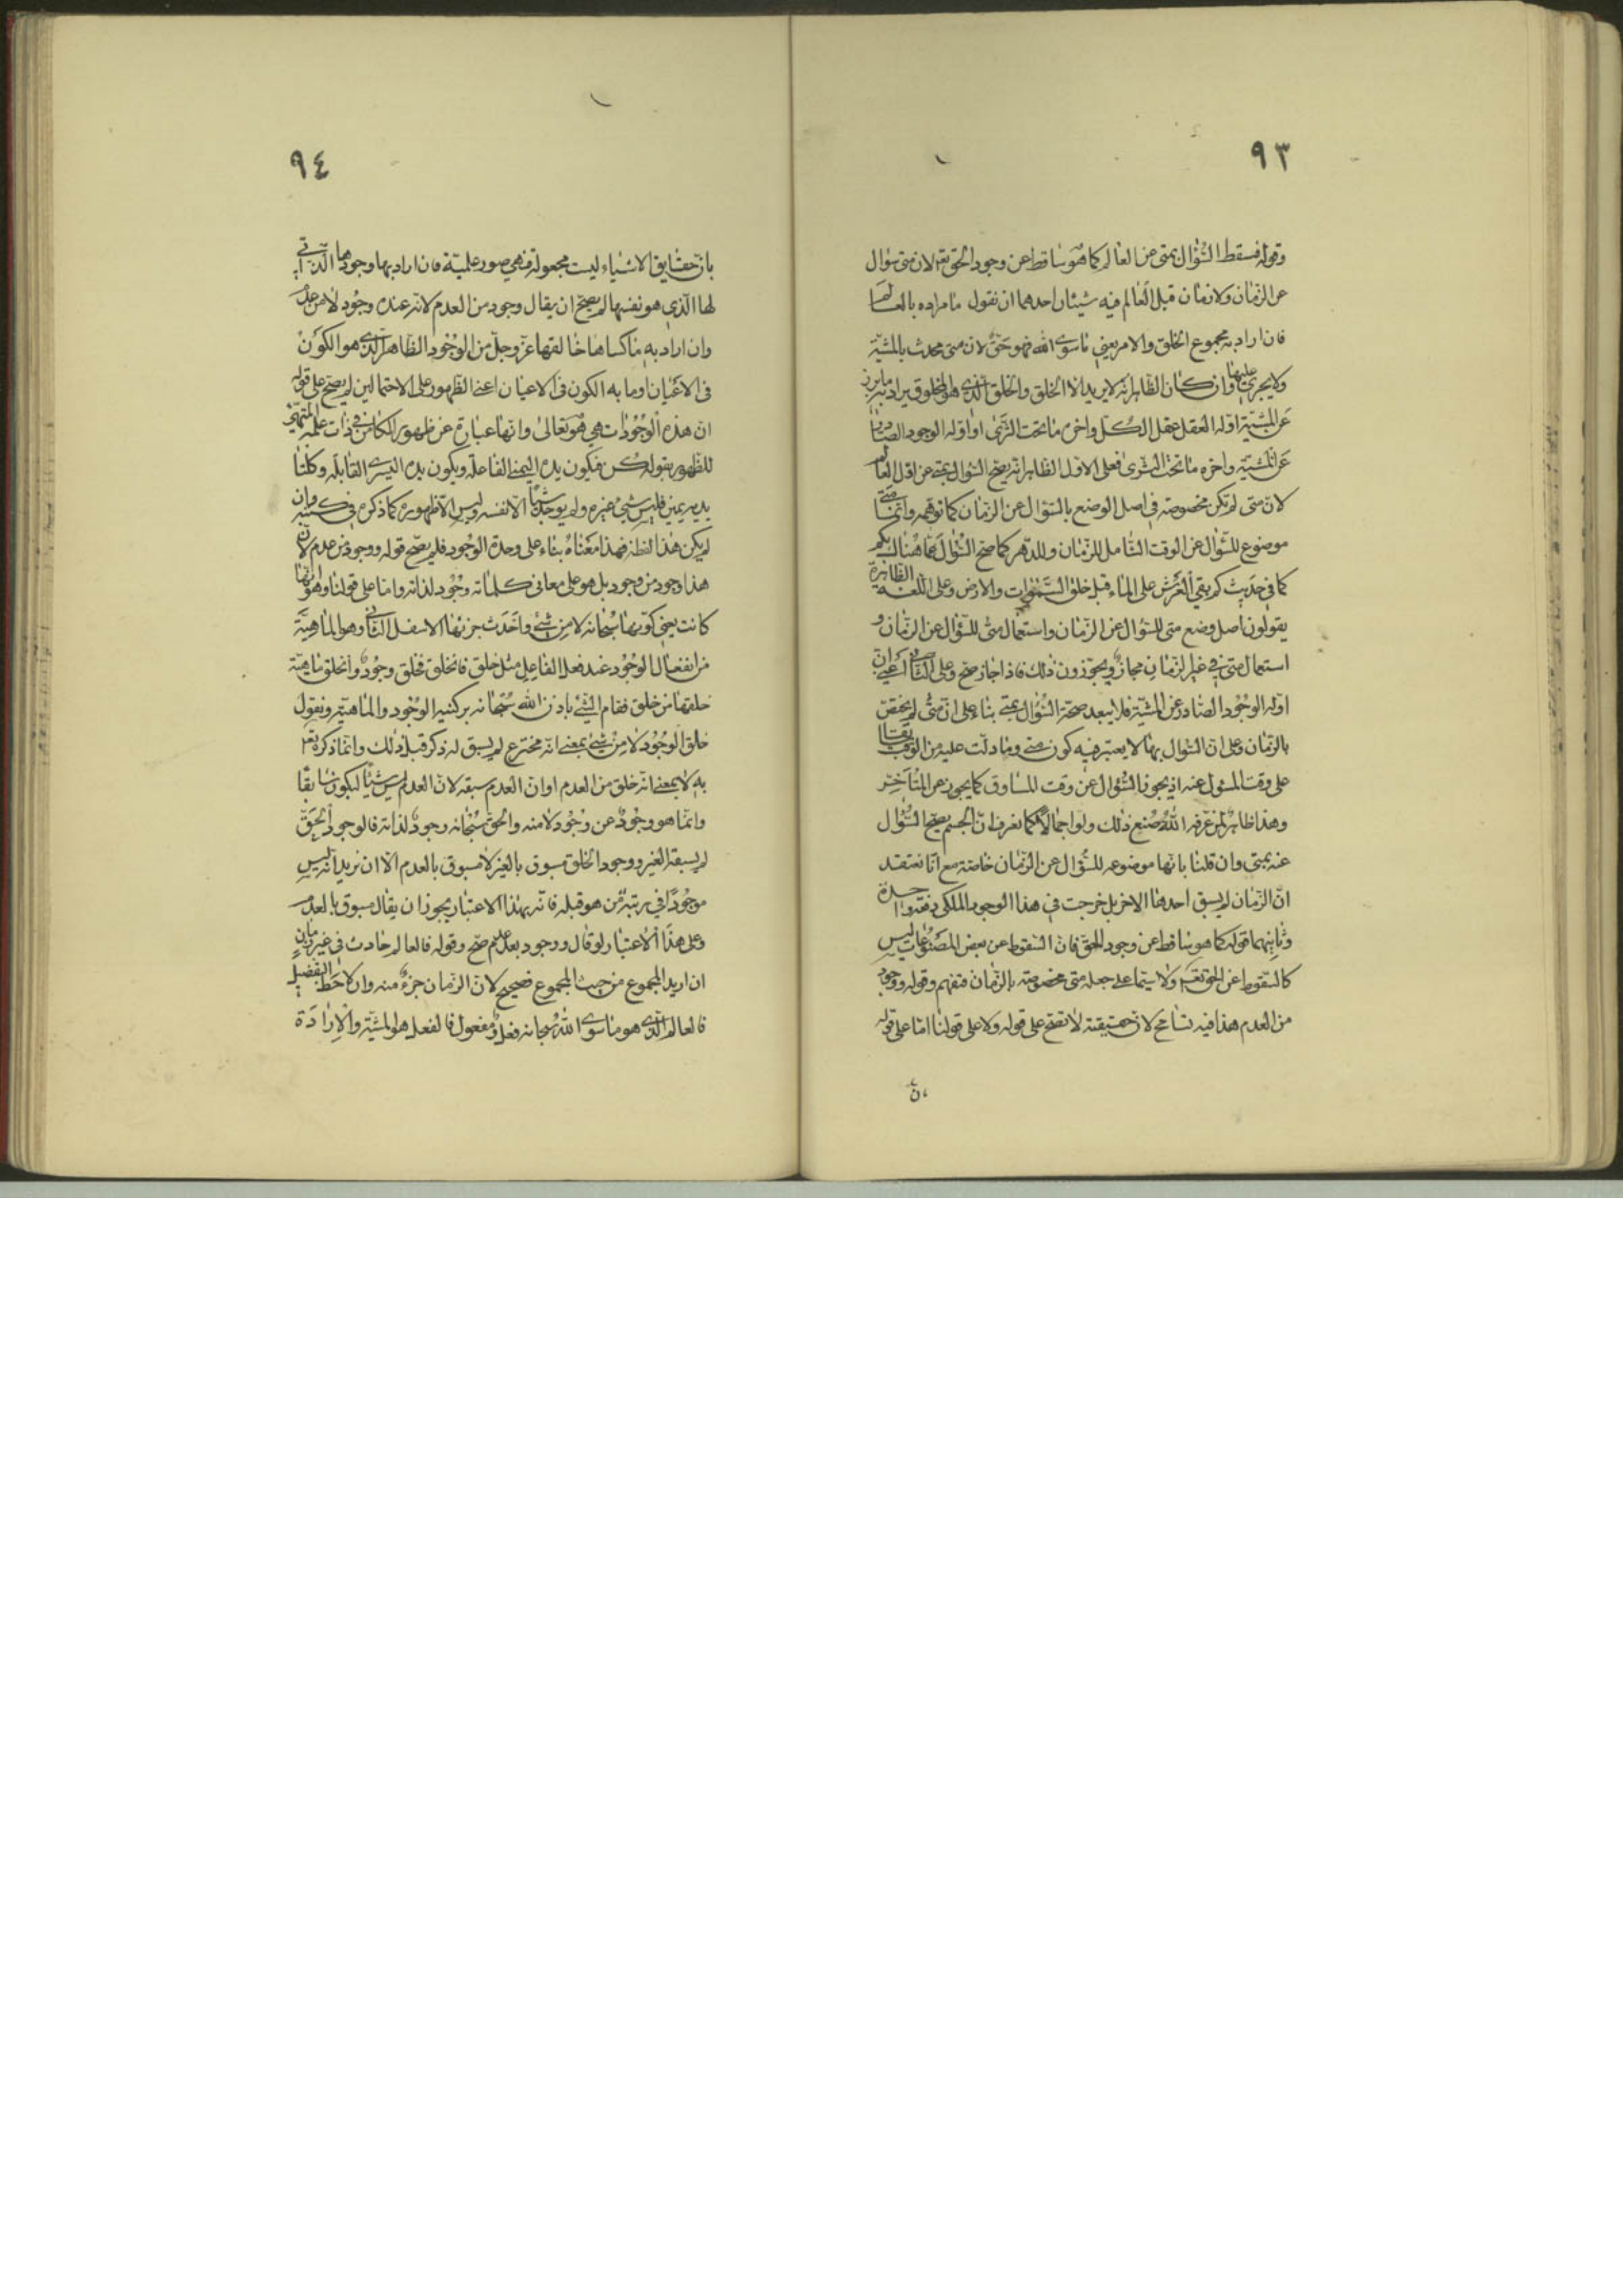 ٩٣
وقوله فسقط السؤال بمتى عن العالم كما هو ساقط عن وجود الحق تعم لان متى سؤال
عن الزمان ولا زمان قبل العالم فيه شيئان احدهما ان نقول ما مراده بالعالم
فان اراد به مجموع الخلق والامر يعني ما سوى الله فهو حق لان متى محدث بالمشية
ولا يجرى عليها وان كان الظاهر انه لا يريد الا الخلق والخلق الذي هو المخلوق يراد به ما برز
عن المشية اوله العقل عقل الكل واخره ما تحت الثرى او اوله الوجود الصادر
عن المشية واخره ما تحت الثرى فعلى الاول الظاهر انه يصح السؤال بمتى عن اول العالم
لان متى لم تكن مخصوصة في اصل الوضع بالسؤال عن الزمان كما توهمه وانما متى
موضوع للسؤال عن الوقت الشامل للزمان وللدهر كما صح السؤال عما هنالك بكم
كما في حديث كم بقي العرش على الماء قبل خلق السموات والارض وعلى اللغة الظاهرة
يقولون اصل وضع متى للسؤال عن الزمان واستعمال متى للسؤال عن الزمان و
استعمال متى في غير الزمان مجاز ويجوزون ذلك فاذا جاز صح وعلى الثاني اعني ان
اوله الوجود الصادر عن المشية فلا يبعد صحة السؤال بمتى بناء على ان متى لم يختص
بالزمان وعلى ان السؤال بها لا يعتبر فيه كون متى وما دلت عليه من الوقت سابقا
على وقت المسئول عنه اذ يجوز السؤال عن وقت للمساوق كما يجوز عن المتاخر
وهذا ظاهر لمن عرفه الله صنع ذلك ولو اجمالا كما نعرف ان الجسم يصح السؤال
عنه بمتى وان قلنا بانها موضوعه للسؤال عن الزمان خاصة مع انا نعتقد
ان الزمان لم يسبق احدهما الاخر بل خرجت في هذا الوجود الملكي دفعة واحدة
وثانيهما قوله كما هو ساقط عن وجود الحق فان السقوط عن بعض المصنوعات ليس
كالسقوط عن الحق تعم ولا سيما على جعله متى مخصوصة بالزمان فتفهم وقوله ووجود
من العدم هذا فيه تسامح لان حقيقته لا تصح على قوله ولا على قولنا اما على قوله
٩٤
بان حقايق الاشياء ليست مجعولة فهي صور علمية فان اراد بها وجودها الذاتي
لها الذي هو نفسها لم يصح ان يقال وجود من العدم لانه عنده وجود لا من عدم
وان اراد به ما كساها خالقها عز وجل من الوجود الظاهر الذي هو الكون
في الاعيان او ما به الكون في الاعيان اعني الظهور على الاحتمالين لم يصح على قوله
ان هذه الوجودات هي هو تعالى وانها عبارة عن ظهور الكامن في ذات علمه المتهيئ
للظهور بقوله كن فيكون يده اليمنى الفاعلة ويكون يده اليسرى القابلة وكلتا
يديه يمين فليس شيئ غيره ولم يوجد شيئا الا نفسه وليس الا ظهوره كما ذكره في كتبه وان
لم يكن هذا لفظه فهذا معناه بناء على وحدة الوجود فلم يصح قوله ووجود من عدم لان
هذا وجود من وجود بل هو على معاني كلماته وجود لذاته واما على قولنا وهو انها
كانت يعني كونها سبحانه لا من شئ واحدث جزئها الاسفل الثاني وهو الماهية
من انفعال الوجود عند فعل الفاعل مثل خلق فانخلق فخلق وجود وانخلق ماهية
خلقها من خلق فقام الشئ باذن الله سبحانه بركنيه الوجود والماهية ونقول
خلق الوجود لا من شئ بمعنى انه مخترع لم يسبق له ذكر قبل ذلك وانما ذكره تعم
به لا بمعنى انه خلق من العدم او ان العدم سبقه لان العدم ليس شيئا ليكون سابقا
وانما هو وجود عن وجود لا منه والحق سبحانه وجود لذاته فالوجود الحق
لم يسبقه الغير ووجود الخلق مسبوق بالغير لا مسبوق بالعدم الا ان نريد انه ليس
موجودا في رتبة من هو قبله فانه بهذا الاعتبار يجوز ان يقال مسبوق بالعدم
وعلى هذا الاعتبار لو قال ووجود بعد عدم صح وقوله فالعالم حادث في غير زمان
ان اريد المجموع من حيث المجموع فصحيح لان الزمان جزء منه وان لاحظ التفضيل
فالعالم الذي هو ما سوى الله سبحانه فعل ومفعول فالفعل هو المشية والارادة